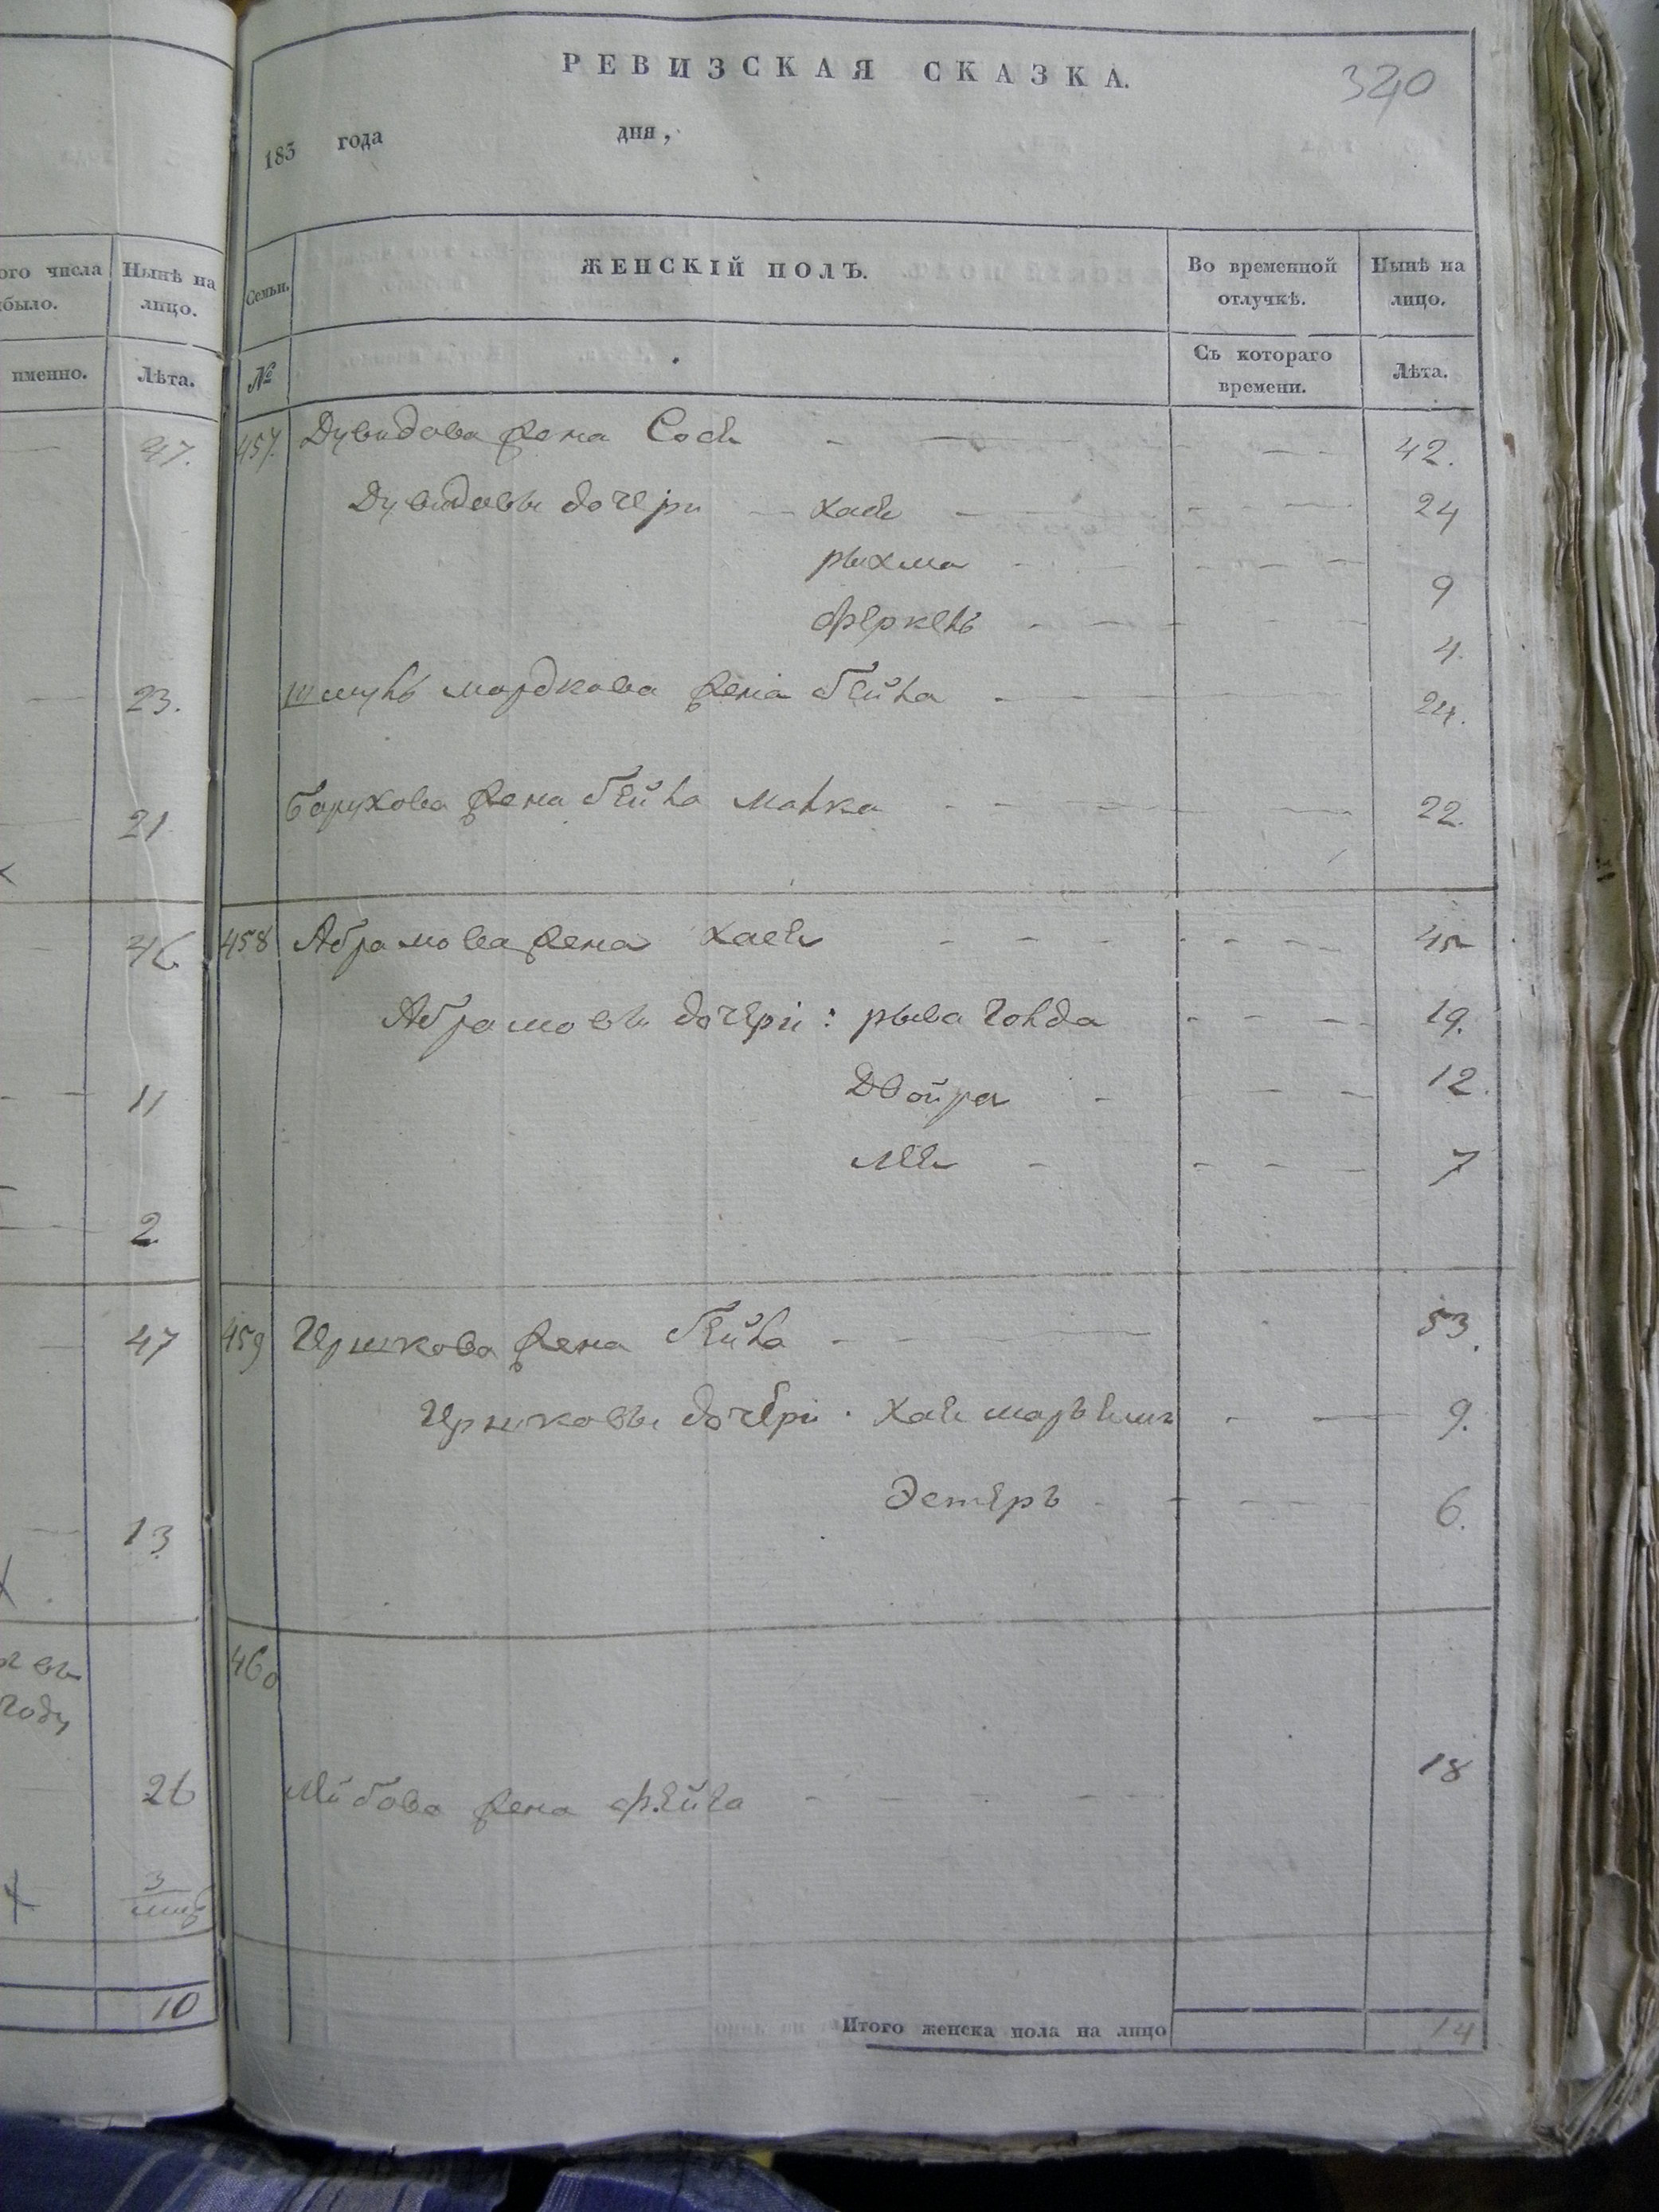 ого числа
было.
Нынѣ на
лицо.
именно.
Лѣта.
47.
23.
21
46
11
2
47
13
году
26
3
10
РЕВИЗСКАЯ СКАЗКА.
340
183 года дня,
Семьи.
ЖЕНСКІЙ ПОЛЪ.
Во временной
отлучкѣ.
Нынѣ на
лицо.
№
Съ котораго
времени.
Лѣта.
457. Дувидова жена Сося 42.
Дувидовы дочери Хая 24
рыхма 9
Феркень 4.
Шмуль мордкова жена Бейла 24.
Барухова жена Бейла Малка 22.
458 Абрамова жена Хася 45
Абрамовы дочери: рыва Голда 19.
Двойра 12.
Лея 7
459 Ицькова жена Бейла 53.
Ицьковы дочери Хая 9.
Эстеръ 6.
460
Лейбова жена Фейга 18
Итого женска пола на лицо 14